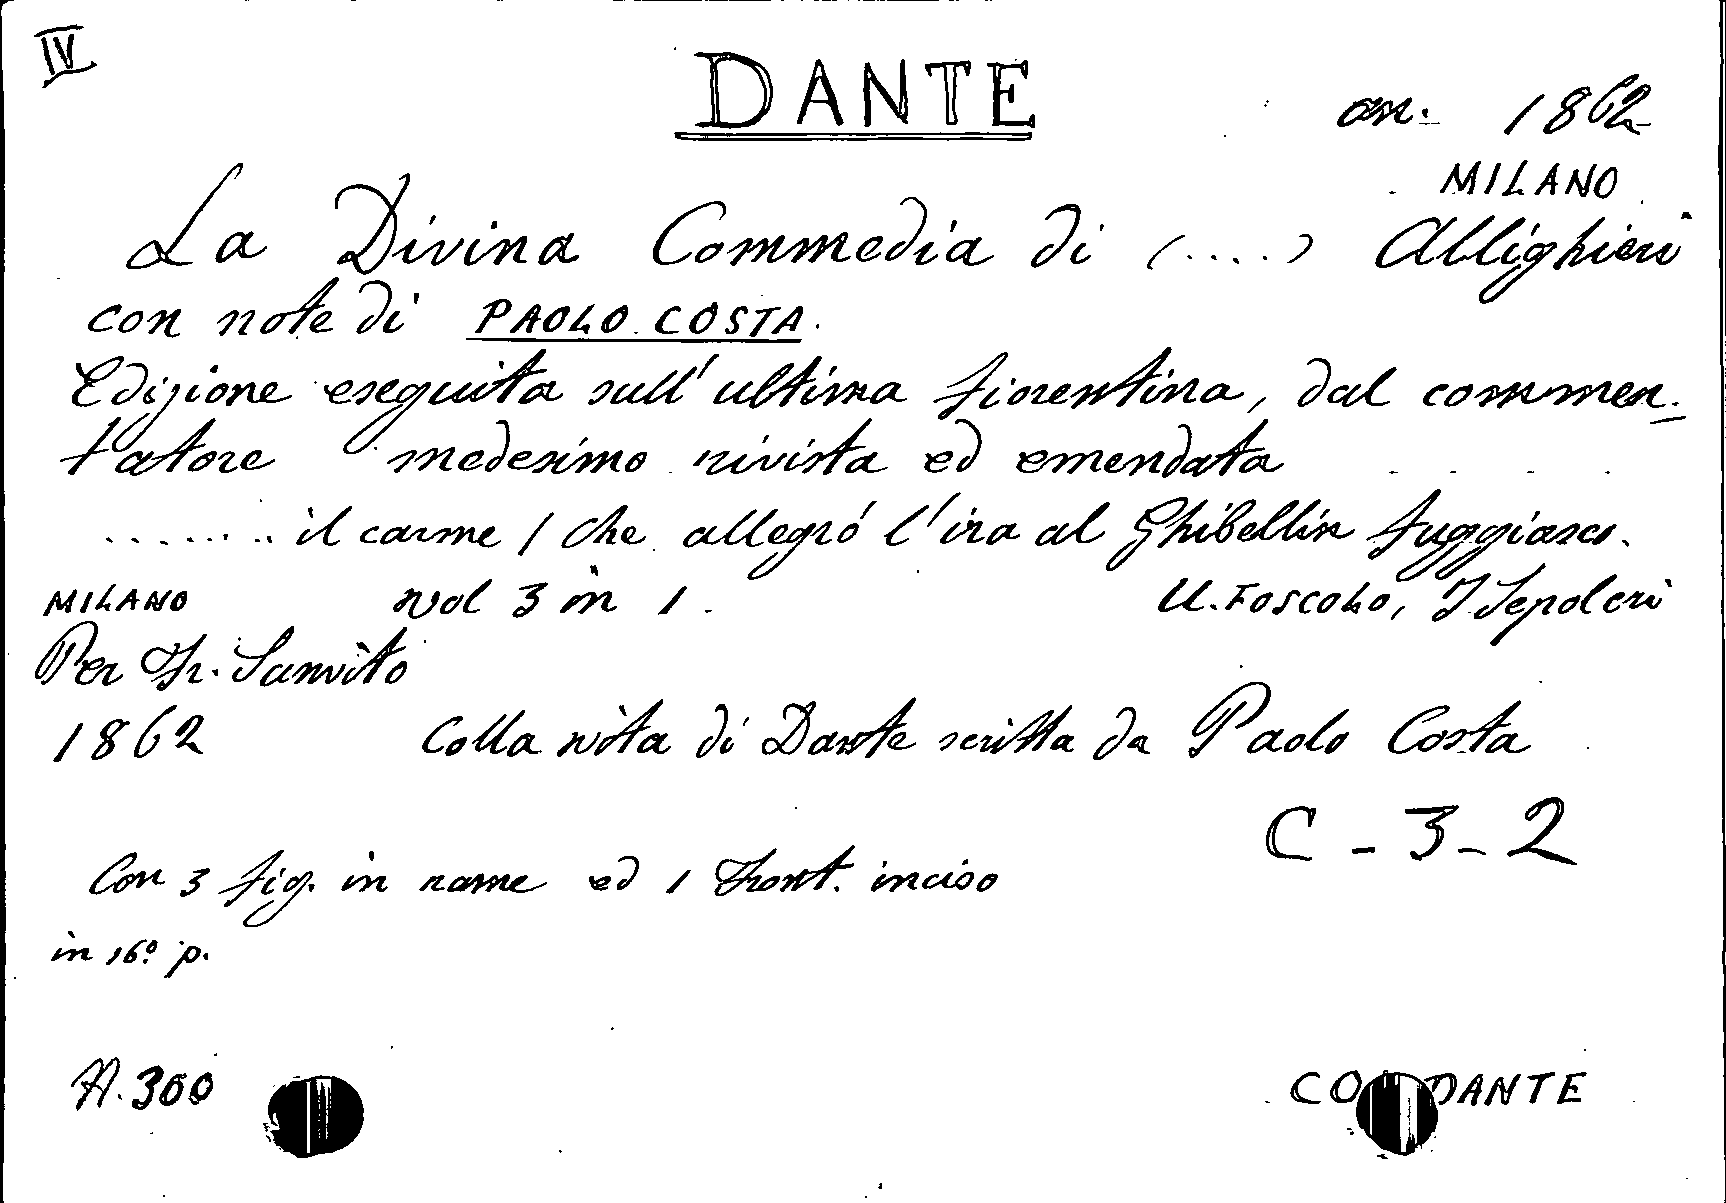 IV
DANTE
an. 1862
MILANO
La Divina Commedia di (....) Allighieri
con note di PAOLO COSTA.
Edizione eseguita sull'ultima fiorentina, dal commen-
tatore medesimo rivista ed emendata
........ il carme / che allegró l'ira al Ghibellin fuggiasco.
MILANO vol 3 in 1. U. FOSCOLO, I Sepolcri
Per Fr. Sanvito
1862 Colla vita di Dante scritta da Paolo Costa
C - 3 - 2
Con 3 fig. in rame ed 1 Front. inciso
in 16º p.
A. 300
DANTE